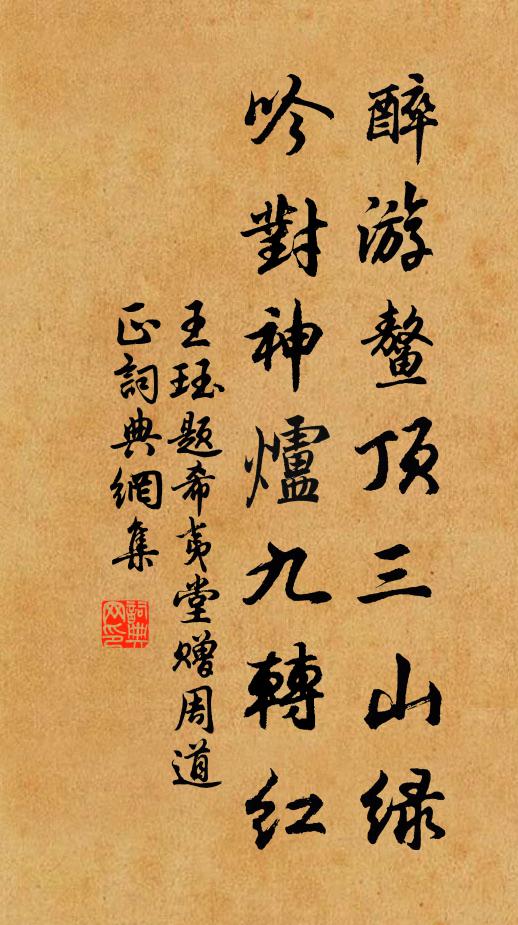 醉游鳌顶三山绿
吟對神爐九轉红
王珏题希夷堂赠周道
正詞典網集
詞典网印